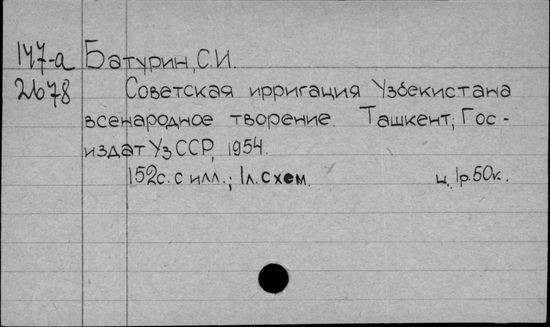 147-а Батурин, С.И.
2678 Советская ирригация Узбекистана
всенародное творение. Ташкент, Гос-
издат УзССР, 1954.
152с. с илл.; 1л. схем. ц. 1р.50к.